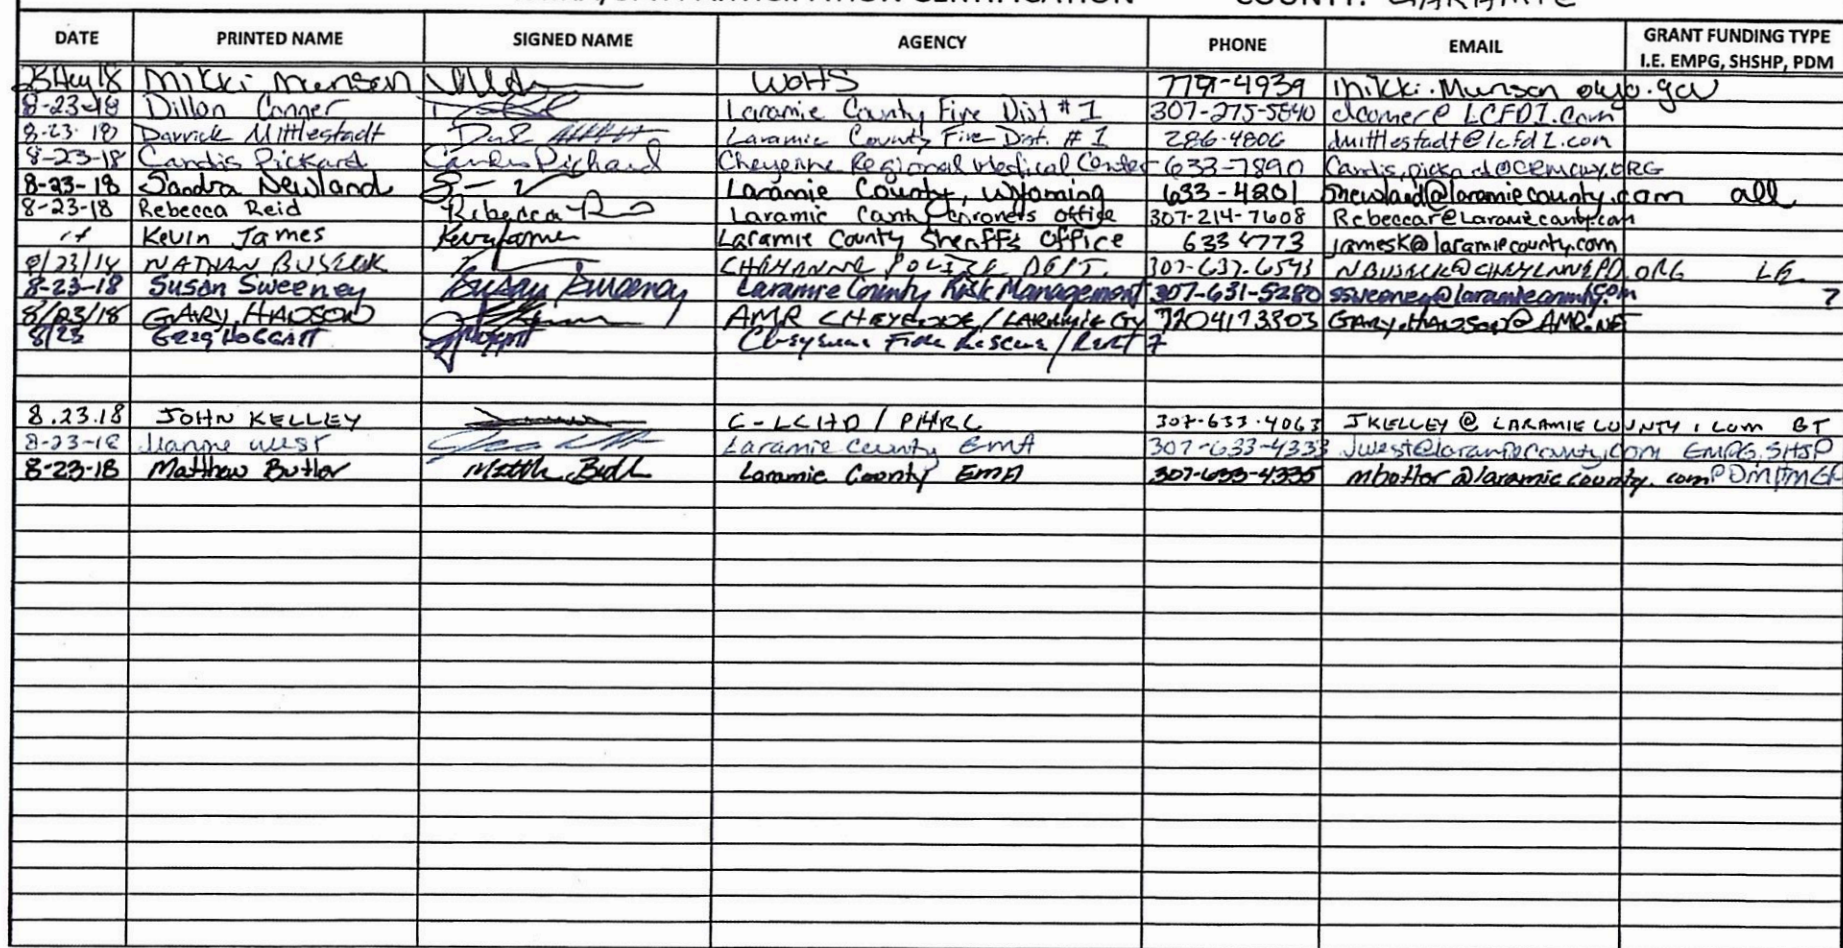 PARTICIPATION CERTIFICATION COUNTY: LARAMIE
DATE PRINTED NAME SIGNED NAME AGENCY PHONE EMAIL GRANT FUNDING TYPE
I.E. EMPG, SHSHP, PDM
23Aug18 Mikki Munson WOHS 777-4939 Mikki.Munson@wyo.gov
8-23-18 Dillon Conner Laramie County Fire Dist #1 307-275-5840 dconner@LCFD1.com
8-23-18 Darrick Mittlestadt Laramie County Fire Dist. #1 286-4806 dmittlestadt@lcfd1.com
8-23-18 Candis Pickard Candis Pickard Cheyenne Regional Medical Center 633-7890 Candis.pickard@CRMCWY.ORG
8-23-18 Sandra Newland Laramie County, Wyoming 633-4201 snewland@laramiecounty.com all
8-23-18 Rebecca Reid Rebecca R Laramie County Coroners office 307-214-7608 Rebeccar@Laramiecounty.com
Kevin James Kevin James Laramie County Sheriffs Office 633 4773 jamesk@laramiecounty.com
8/23/18 NATHAN BUSEK CHEYENNE POLICE DEPT. 307-637-6543 ORG LE
8-23-18 Susan Sweeney Susan Sweeney Laramie County Risk Management 307-631-5280 ssweeney@laramiecounty.com ?
8/23/18 GARY HADSON AMR CHEYENNE/LARAMIE CY 7204173803 AMR.NET
8/23 Greg Hoggatt Cheyenne Fire Rescue / Rert 7
8.23.18 JOHN KELLEY C-LCHD / PHRC 307-633-4063 JKELLEY@LARAMIECOUNTY.COM BT
8-23-18 Jeanne West Laramie County EMA 307-633-4333 jwest@laramiecounty.com EMPG, SHSP
8-23-18 Matthew Butler Laramie County EMA 307-633-4335 mbutler@laramiecounty.com PDM